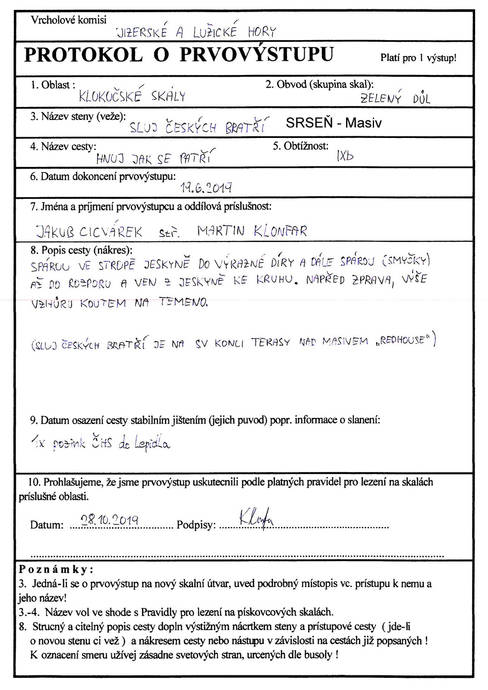 Vrcholové komisi
JIZERSKÉ A LUŽICKÉ HORY
PROTOKOL O PRVOVÝSTUPU Platí pro 1 výstup!
1. Oblast : 2. Obvod (skupina skal):
KLOKOČSKÉ SKÁLY ZELENÝ DŮL
3. Název steny (veže): SLUJ ČESKÝCH BRATŘÍ SRSEŇ - Masiv
4. Název cesty: 5. Obtížnost:
HNUJ JAK SE PATŘÍ IXb
6. Datum dokoncení prvovýstupu:
19.6.2019
7. Jména a príjmení prvovýstupcu a oddílová príslušnost:
JAKUB CICVÁREK stř. MARTIN KLONFAR
8. Popis cesty (nákres):
SPÁROU VE STROPĚ JESKYNĚ DO VÝRAZNÉ DÍRY A DÁLE SPÁROU (SMYČKY)
AŽ DO ROZPORU A VEN Z JESKYNĚ KE KRUHU. NAPŘED ZPRAVA, VÝŠE
VZHŮRU KOUTEM NA TEMENO.
(SLUJ ČESKÝCH BRATŘÍ JE NA SV KONCI TERASY NAD MASIVEM „REDHOUSE")
9. Datum osazení cesty stabilním jištením (jejich puvod) popr. informace o slanení:
1x pozink ČHS do Lepidla
10. Prohlašujeme, že jsme prvovýstup uskutecnili podle platných pravidel pro lezení na skalách
príslušné oblasti.
Datum: 28.10.2019 Podpisy:
Poznámky:
3. Jedná-li se o prvovýstup na nový skalní útvar, uved podrobný místopis vc. prístupu k nemu a
jeho název!
3.-4. Název vol ve shode s Pravidly pro lezení na pískovcových skalách.
8. Strucný a citelný popis cesty doplň výstižným nácrtkem steny a prístupové cesty ( jde-li
o novou stenu ci vež ) a nákresem cesty nebo nástupu v závislosti na cestách již popsaných !
K oznacení smeru užívej zásadne svetových stran, urcených dle busoly !